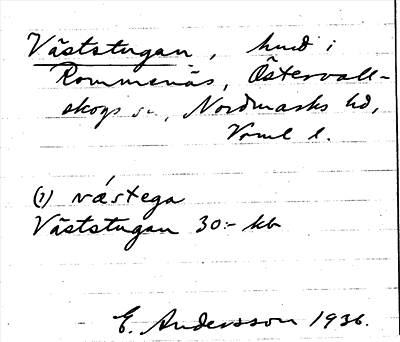 Väststugan, hmd i
Rommenäs, Östervall-
skogs sn, Nordmarks hd,
Värml l.
(1) væ´stega
Väststugan 30:- kb
E. Andersson 1936.